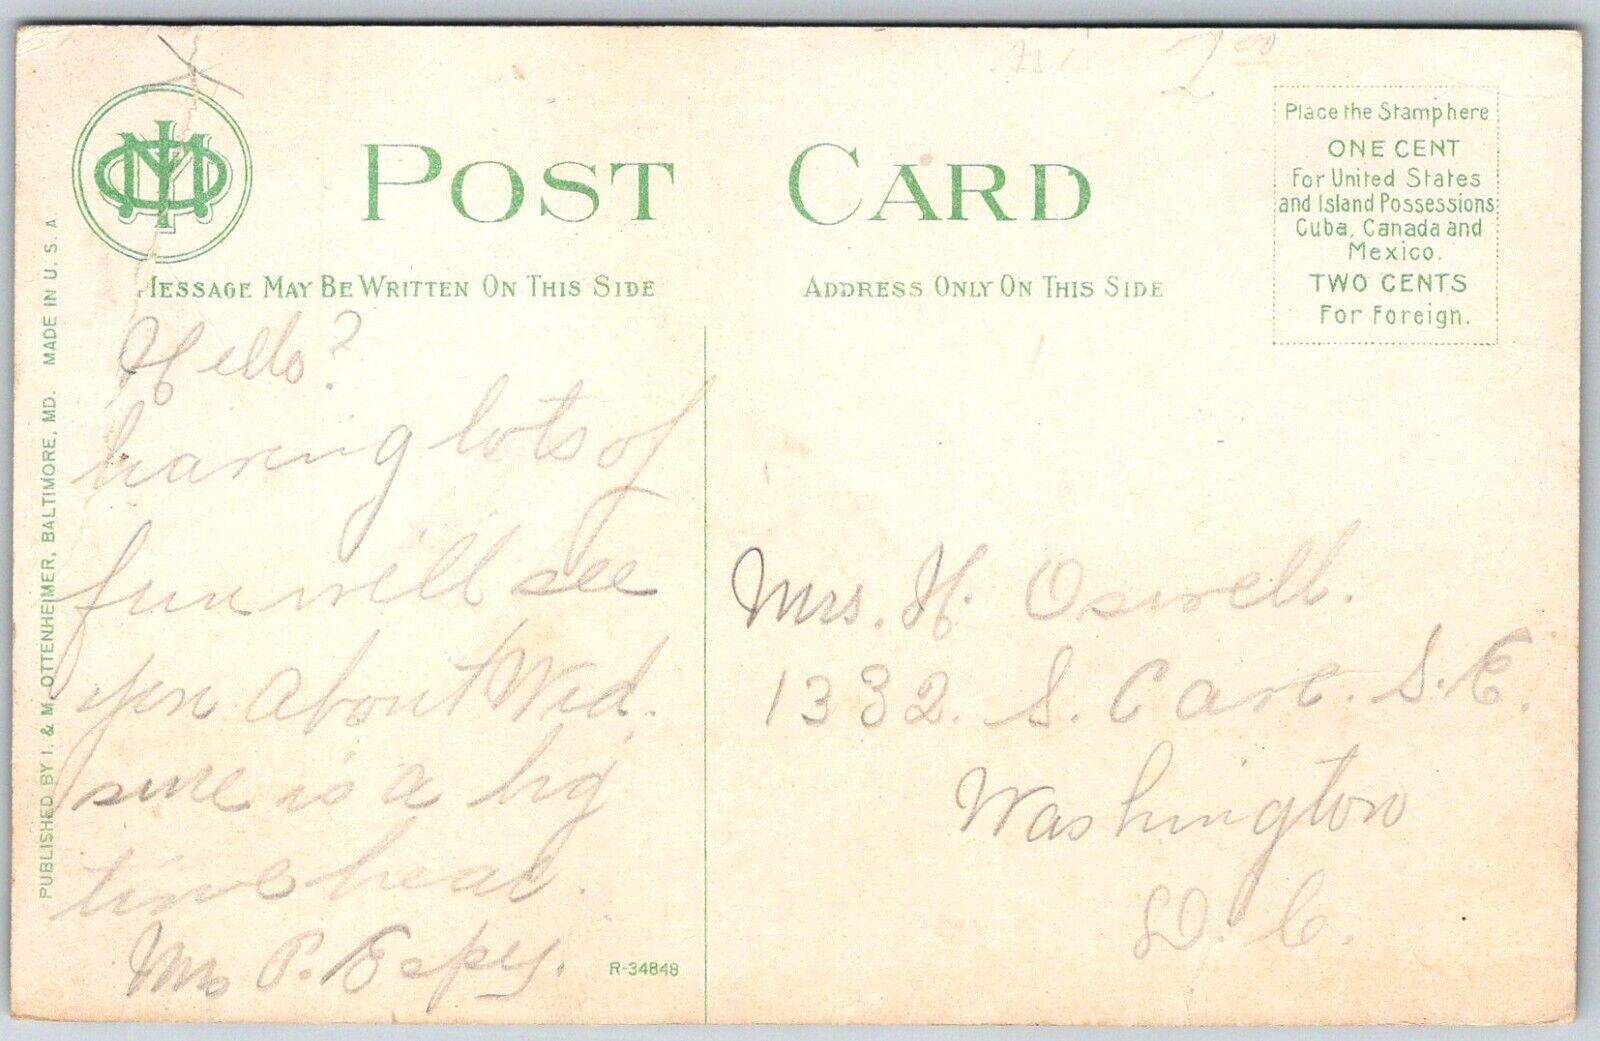 2.00
POST CARD
Place the Stamp here
ONE CENT
For United States
and Island Possessions
Cuba, Canada and
Mexico.
TWO CENTS
For Foreign.
MESSAGE MAY BE WRITTEN ON THIS SIDE
ADDRESS ONLY ON THIS SIDE
PUBLISHED BY I. & M. OTTENHEIMER, BALTIMORE, MD. MADE IN U. S. A
Hello?
having lots of
fun will see
you about Wed.
sure is a big
time hear.
Mrs P. Espey.
R-34848
Mrs. H. Oswell.
1332. S. Care. S.E.
Washington
D. C.